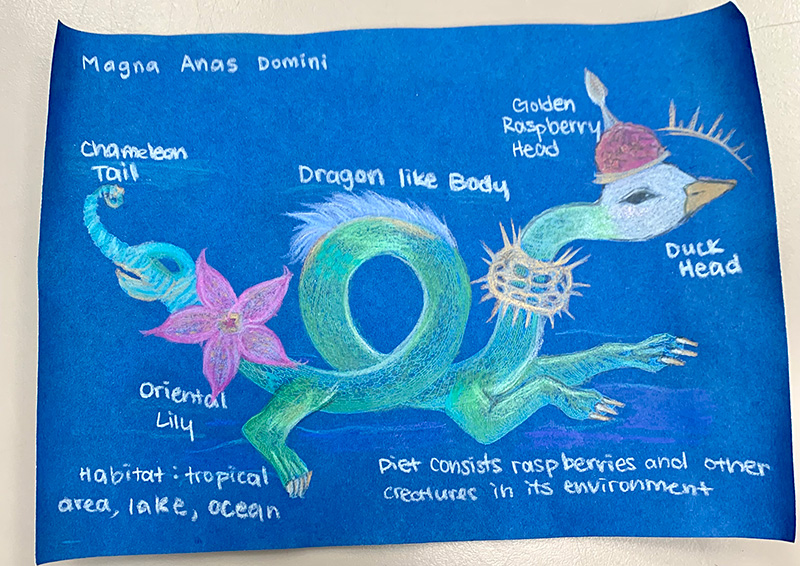 Magna Anas Domini
Golden
Raspberry
Head
Chameleon
Tail
Dragon like Body
Duck
Head
Oriental
Lily
Habitat: tropical
area, lake, ocean
Diet consists raspberries and other
creatures in its environment